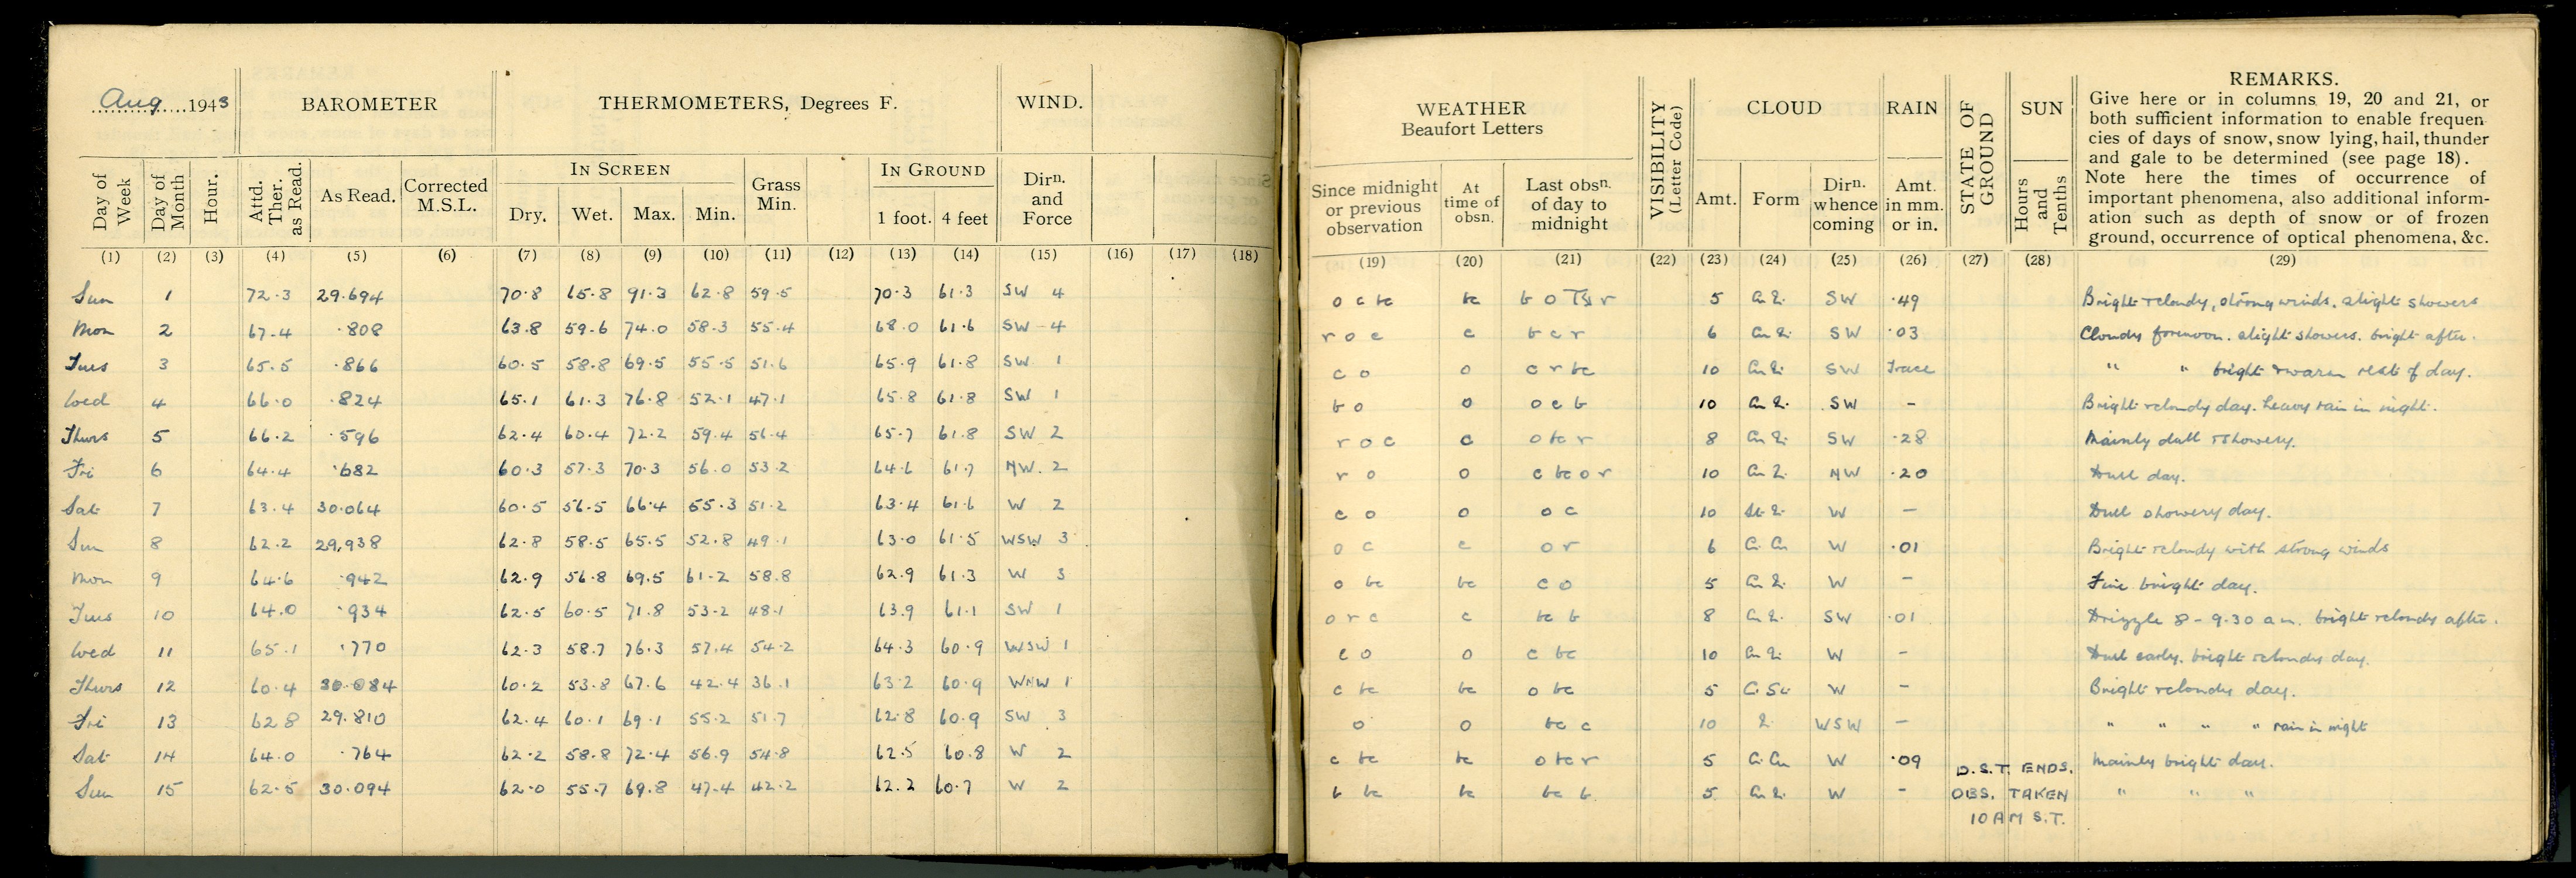 Aug 1943
BAROMETER
THERMOMETERS, Degrees F.
WIND.
Day of Week
Day of Month
Hour.
Attd. Ther. as Read.
As Read.
Corrected M.S.L.
IN SCREEN
Dry. Wet. Max. Min.
Grass Min.
IN GROUND
1 foot. 4 feet
Dirn. and Force
(1) (2) (3) (4) (5) (6) (7) (8) (9) (10) (11) (12) (13) (14) (15) (16) (17) (18)
Sun 1 72.3 29.694 70.8 65.8 91.3 62.8 59.5 70.3 61.3 SW 4
Mon 2 67.4 .808 63.8 59.6 74.0 58.3 55.4 68.0 61.6 SW 4
Tues 3 65.5 .866 60.5 58.8 69.5 55.5 51.6 65.9 61.8 SW 1
Wed 4 66.0 .824 65.1 61.3 76.8 52.1 47.1 65.8 61.8 SW 1
Thurs 5 66.2 .596 62.4 60.4 72.2 59.4 56.4 65.7 61.8 SW 2
Fri 6 64.4 .682 60.3 57.3 70.3 56.0 53.2 64.6 61.7 NW. 2
Sat 7 63.4 30.064 60.5 56.5 66.4 55.3 51.2 63.4 61.6 W 2
Sun 8 62.2 29.938 62.8 58.5 65.5 52.8 49.1 63.0 61.5 WSW 3
Mon 9 64.6 .942 62.9 56.8 69.5 61.2 58.8 62.9 61.3 W 3
Tues 10 64.0 .934 62.5 60.5 71.8 53.2 48.1 63.9 61.1 SW 1
Wed 11 65.1 .770 62.3 58.7 76.3 57.4 54.2 64.3 60.9 WSW 1
Thurs 12 60.4 30.084 60.2 53.8 67.6 42.4 36.1 63.2 60.9 WNW 1
Fri 13 62.8 29.810 62.4 60.1 69.1 55.2 51.7 62.8 60.9 SW 3
Sat 14 64.0 .764 62.2 58.8 72.4 56.9 54.8 62.5 60.8 W 2
Sun 15 62.5 30.094 62.0 55.7 69.8 47.4 42.2 62.2 60.7 W 2
WEATHER
Beaufort Letters
VISIBILITY (Letter Code)
CLOUD
RAIN
STATE OF GROUND
SUN
REMARKS.
Give here or in columns 19, 20 and 21, or
both sufficient information to enable frequen
cies of days of snow, snow lying, hail, thunder
and gale to be determined (see page 18).
Note here the times of occurrence of
important phenomena, also additional inform-
ation such as depth of snow or of frozen
ground, occurrence of optical phenomena, &c.
Since midnight or previous observation
At time of obsn.
Last obsn. of day to midnight
Amt. Form
Dirn. whence coming
Amt. in mm. or in.
Hours and Tenths
(19) (20) (21) (22) (23) (24) (25) (26) (27) (28) (29)
o c bc bc b o r 5 SW .49 Bright & cloudy, strong winds. slight showers
r o c c b c r 6 SW .03 Cloudy forenoon. slight showers. bright after.
c o o c r bc 10 SW Trace " " bright & warm rest of day.
b o o o c b 10 SW - Bright & cloudy day. heavy rain in night.
r o c c o bc r 8 SW .28 Mainly dull & showery.
r o o c bc o r 10 NW .20 Dull day.
c o o o c 10 W - Dull showery day.
o c c o r 6 Ci. Cu W .01 Bright & cloudy with strong winds
o bc bc c o 5 W - Fine bright day.
o r c c bc b 8 SW .01 Drizzle 8 - 9.30 a m. bright & cloudy after.
c o o c bc 10 W - Dull early. bright & cloudy day.
c bc bc o bc 5 W - Bright & cloudy day.
o o bc c 10 WSW - " " " " rain in night
c bc bc o bc r 5 Ci. Cu W .09 Mainly bright day.
b bc bc bc b 5 W - " " "
D.S.T. ENDS.
OBS. TAKEN
10 AM S.T.